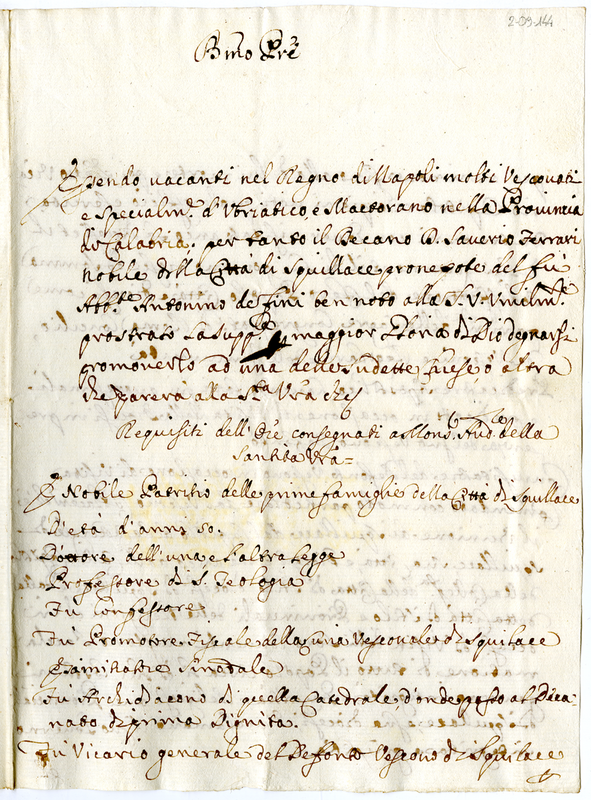 2-09-144
Bmo Pre
Essendo vacanti nel Regno di Napoli molti Vescovati
e specialmte d'Vbriatico, e Martorano nella Provincia
di Calabria, per tanto il Decano D. Saverio Ferrari
nobile della Città di Squillace pronepote del fù
Abbte Antonino de Fini ben noto alla S. V. Vmilmte
prostrato la suppca maggior Gloria di Dio degnarsi
promoverlo ad una delle sudette Chiese, ò altra
che parerà alla Sta Vra che
Requisiti dell'Ore consegnati a Monsr Aude della
Santità Vra =
E Nobile Patritio delle prime famiglie della Città di Squillace
D'età d'anni 50.
Dottore dell'una e l'altra legge
Professore di S. Teologia
Fù Confessore
Fù Promotore Fiscale della Curia Vescovale di Squillace
Esaminatore Sinodale
Fù Archidiacono di quella Catedrale, d'onde passò al Deca-
nato di prima Dignità.
Fù Vicario generale del Defonto Vescovo di Squillace